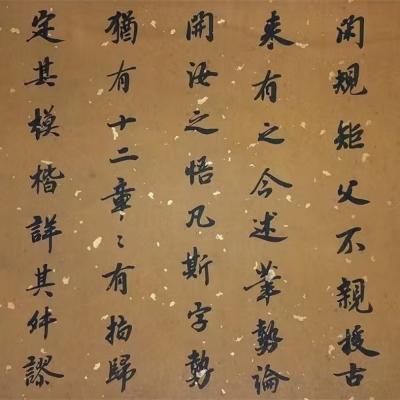 闲规矩父不親授古
來有之今述筆勢論
開汝之悟凡斯字勢
猶有十二章〻有指歸
定其模楷詳其舛謬